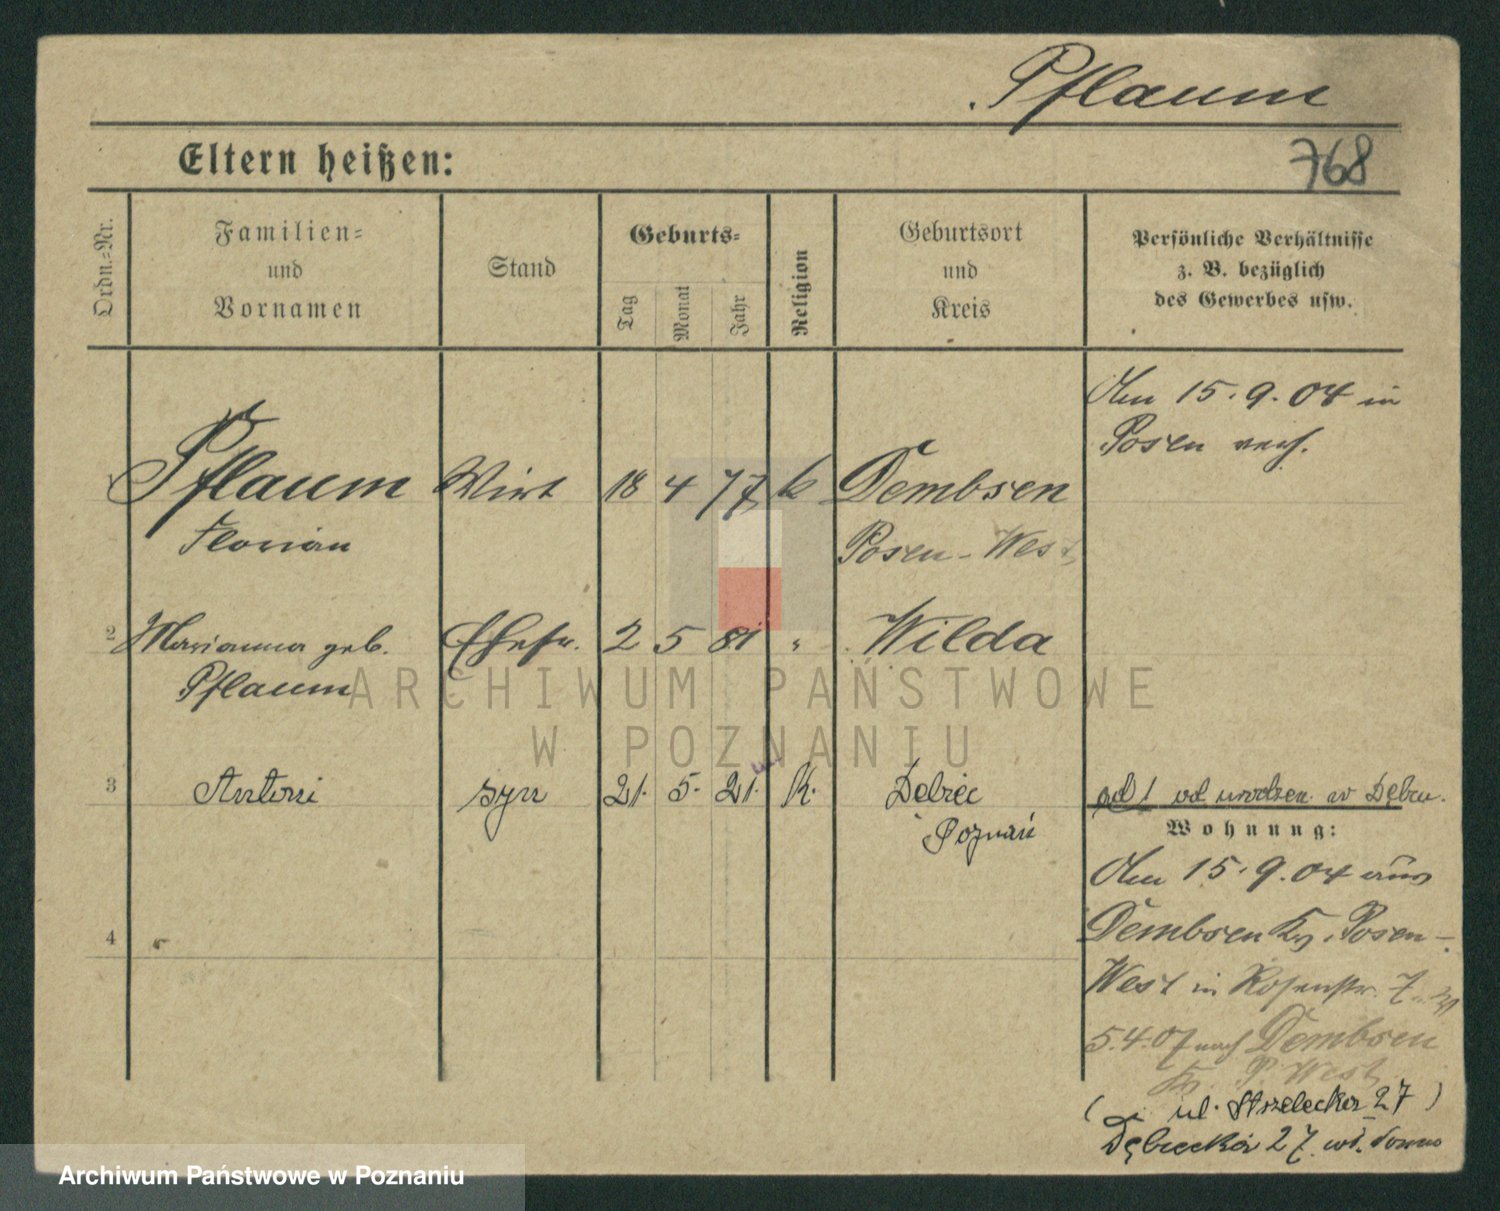 Pflaum
768
Eltern heißen:
Ordn.=Nr.
Familien=
und
Vornamen
Stand
Geburts=
Tag
Monat
Jahr
Religion
Geburtsort
und
Kreis
Persönliche Verhältnisse
z. B. bezüglich
des Gewerbes usw.
Am 15.9.04 in
Posen verh.
Pflaum Wirt 18 4 77 k Dembsen
Florian Posen-West
2 Marianna geb. Ehefr. 2 5 81 " Wilda
Pflaum
ARCHIWUM PAŃSTWOWE
W POZNANIU
3 Antoni syn 21. 5. 21. k. Dębiec
Poznań
ad 1 od urodzen. w Dębcu.
Wohnung:
Am 15.9.04 aus
4
Dembsen Kr. Posen-
West in Rosenstr. 7
5.4.07 nach Dembsen
Kr. P. West
( ul. Strzelecka 27 )
Dębiecka 27 wł. domu
Archiwum Państwowe w Poznaniu